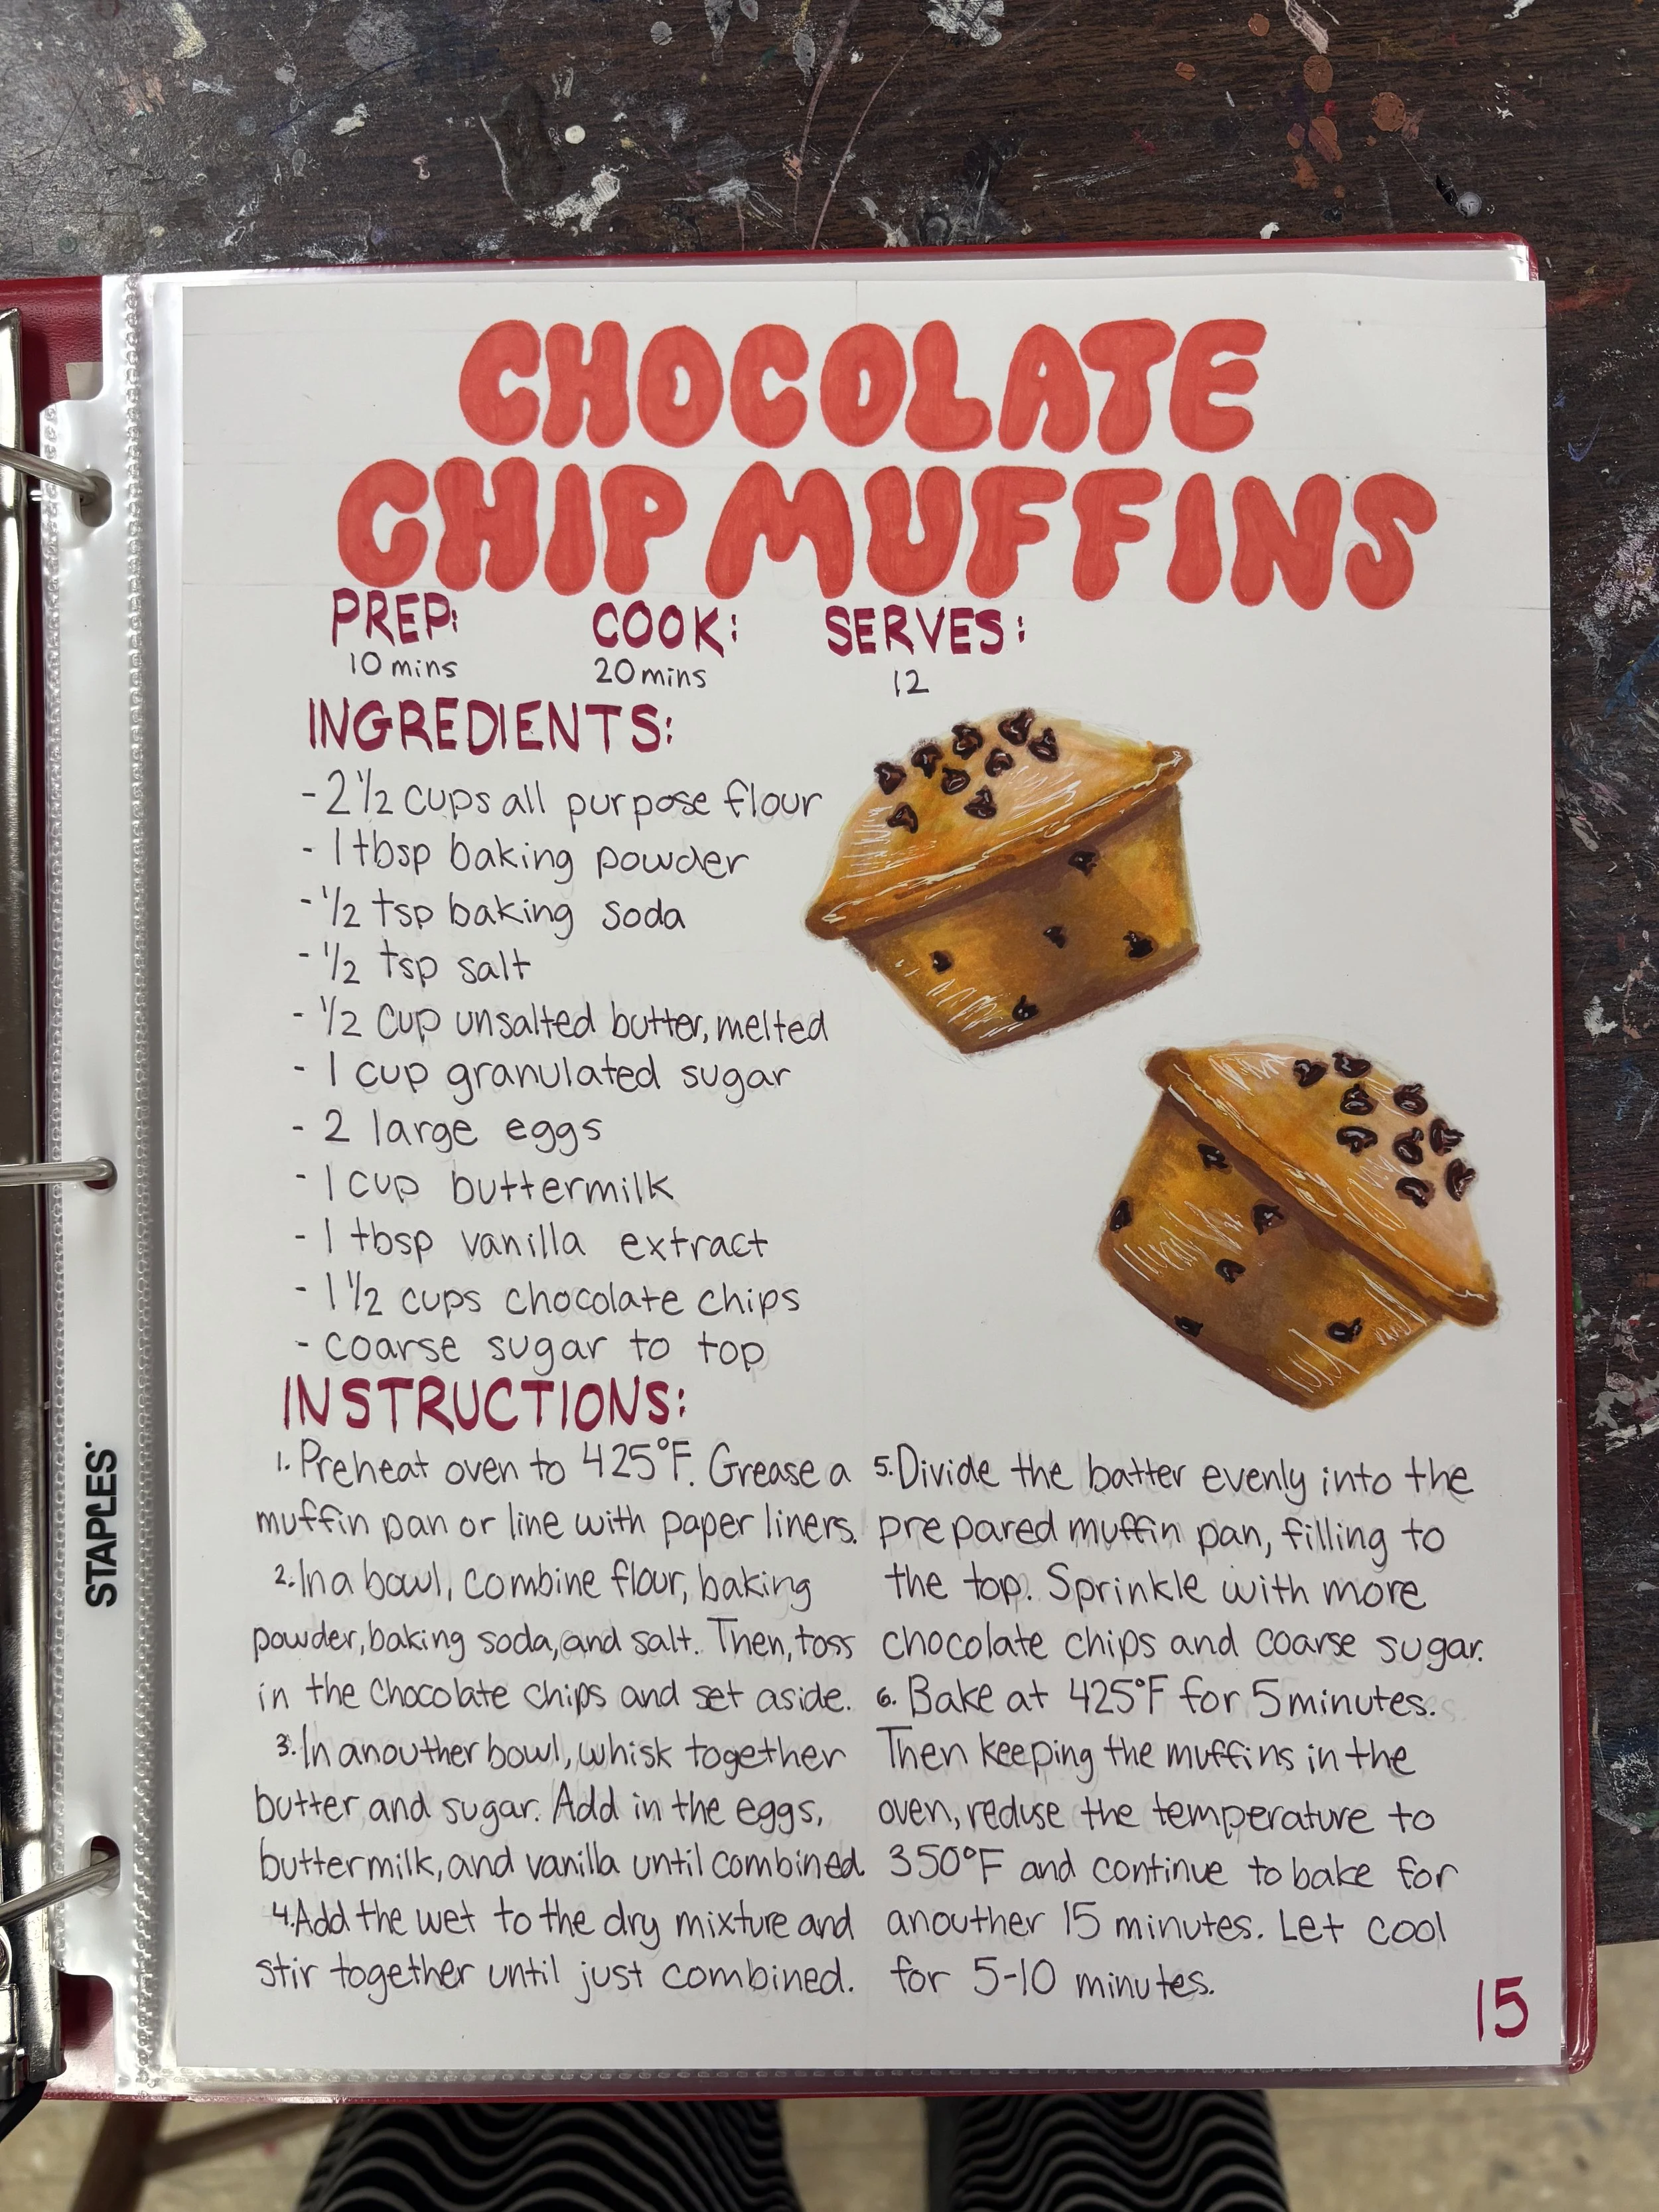 CHOCOLATE
CHIP MUFFINS
PREP:
10 mins
COOK:
20 mins
SERVES:
12
INGREDIENTS:
- 2 1/2 cups all purpose flour
- 1 tbsp baking powder
- 1/2 tsp baking soda
- 1/2 tsp salt
- 1/2 cup unsalted butter, melted
- 1 cup granulated sugar
- 2 large eggs
- 1 cup buttermilk
- 1 tbsp vanilla extract
- 1 1/2 cups chocolate chips
- coarse sugar to top
INSTRUCTIONS:
1. Preheat oven to 425°F. Grease a
muffin pan or line with paper liners.
2. In a bowl, combine flour, baking
powder, baking soda, and salt. Then, toss
in the chocolate chips and set aside.
3. In anouther bowl, whisk together
butter and sugar. Add in the eggs,
buttermilk, and vanilla until combined.
4. Add the wet to the dry mixture and
stir together until just combined.
5. Divide the batter evenly into the
prepared muffin pan, filling to
the top. Sprinkle with more
chocolate chips and coarse sugar.
6. Bake at 425°F for 5 minutes.
Then keeping the muffins in the
oven, reduse the temperature to
350°F and continue to bake for
anouther 15 minutes. Let cool
for 5-10 minutes.
15
STAPLES